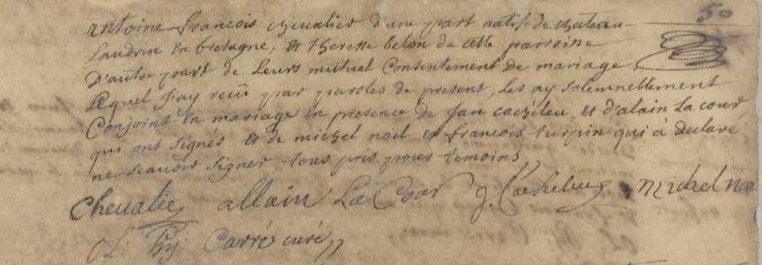 50
antoine françois chevalier d'une part natif de chateau
Laudren en bretagne, et therese belon de cette paroisse
D'autre part de Leurs mutuel Consentement de mariage
Lequel J'ay receü par paroles de present, Les ay solemnellement
Conjoint en mariage en presence de Jan cocheleu, et d'alain La cour
qui ont signés et de michel noël et françois turpin qui à declaré
ne scavoir signer tous pris pour temoins
Chevalier allain La Cour J. Cocheleu michel no
Carré curé